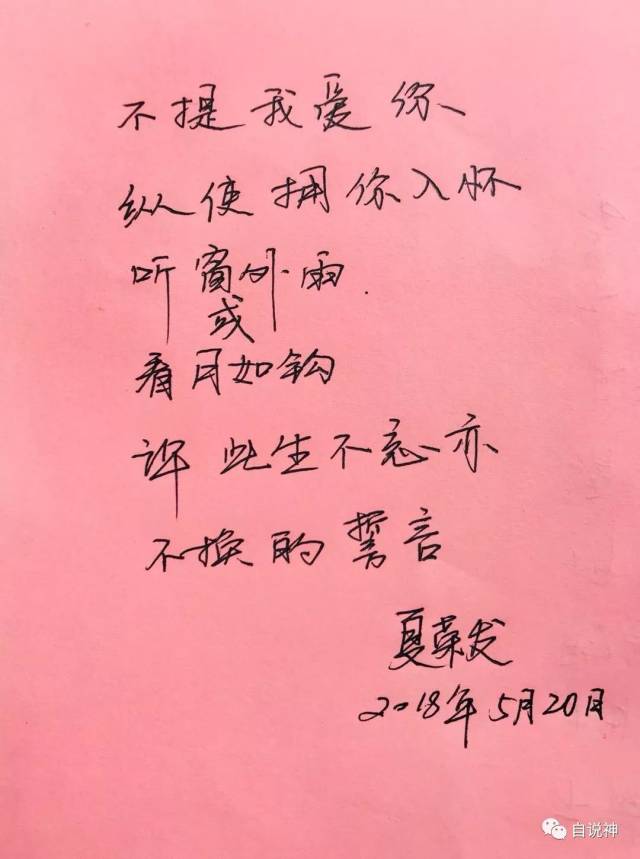 不提我爱你
纵使拥你入怀
听窗外雨
或
看月如钩
许此生不忘亦
不换的誓言
夏荣发
2018年5月20日
自说神